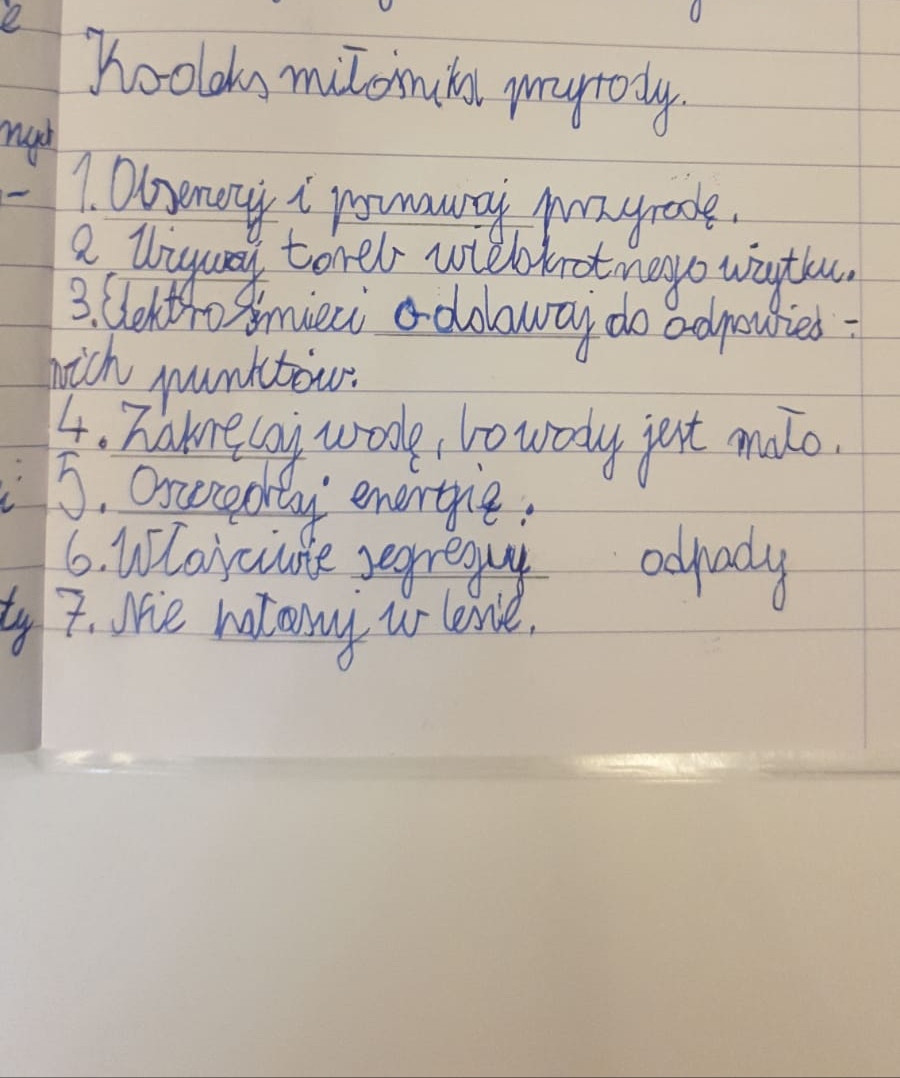 Kodeks miłośnika przyrody.
nych
1. Obserwuj i poznawaj przyrodę.
2 Używaj toreb wielokrotnego użytku.
3. Elektrośmieci oddawaj do odpowied-
nich punktów.
4. Zakręcaj wodę, bo wody jest mało.
5. Oszczędzaj energię.
6. Właściwie segreguj odpady
ty 7. Nie hałasuj w lesie.